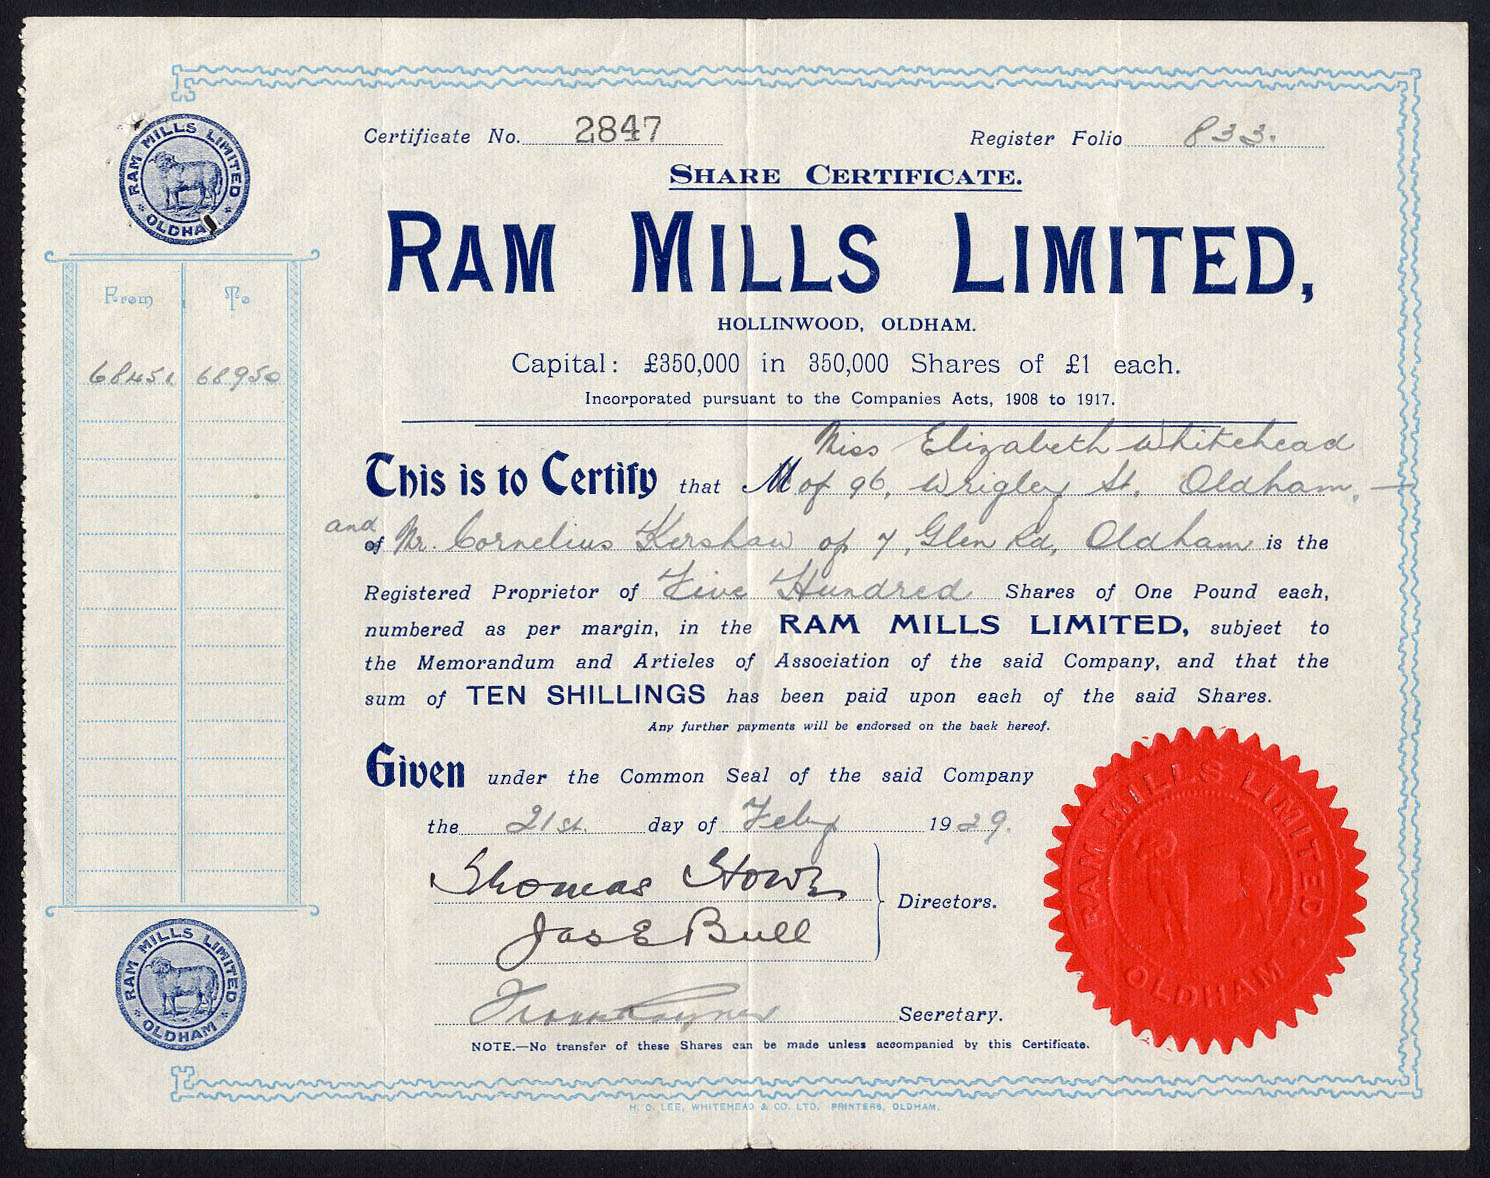 RAM MILLS LIMITED
OLDHAM
Certificate No. 2847
Register Folio 833.
SHARE CERTIFICATE.
RAM MILLS LIMITED,
HOLLINWOOD, OLDHAM.
Capital: £350,000 in 350,000 Shares of £1 each.
Incorporated pursuant to the Companies Acts, 1908 to 1917.
From To
68451 68950
Miss Elizabeth Whitehead
This is to Certify that M of 96, Wrigley St. Oldham,
and
of Mr. Cornelius Kershaw of 7, Glen Rd, Oldham is the
Registered Proprietor of Five Hundred Shares of One Pound each,
numbered as per margin, in the RAM MILLS LIMITED, subject to
the Memorandum and Articles of Association of the said Company, and that the
sum of TEN SHILLINGS has been paid upon each of the said Shares.
Any further payments will be endorsed on the back hereof.
Given under the Common Seal of the said Company
the 21st. day of Feby 1929.
Thomas
Jas E Bull
Directors.
Secretary.
NOTE.—No transfer of these Shares can be made unless accompanied by this Certificate.
RAM MILLS LIMITED
OLDHAM
RAM MILLS LIMITED
OLDHAM
H. C. LEE, WHITEHEAD & CO. LTD, PRINTERS, OLDHAM.